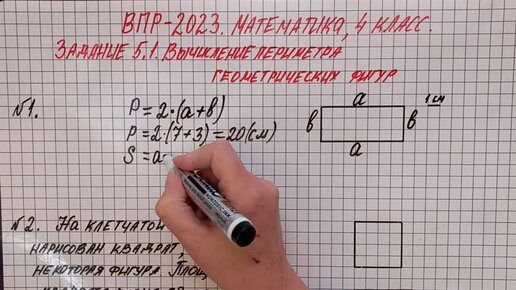 ВПР-2023. МАТЕМАТИКА, 4 КЛАСС.
ЗАДАНИЕ 5.1. ВЫЧИСЛЕНИЕ ПЕРИМЕТРА
ГЕОМЕТРИЧЕСКИХ ФИГУР
№1.
P = 2·(a+b)
P = 2·(7+3) = 20(см)
S = a·
a
b
b
a
1 см
№2. НА КЛЕТЧАТОЙ
НАРИСОВАН КВАДРАТ,
НЕКОТОРАЯ ФИГУРА.